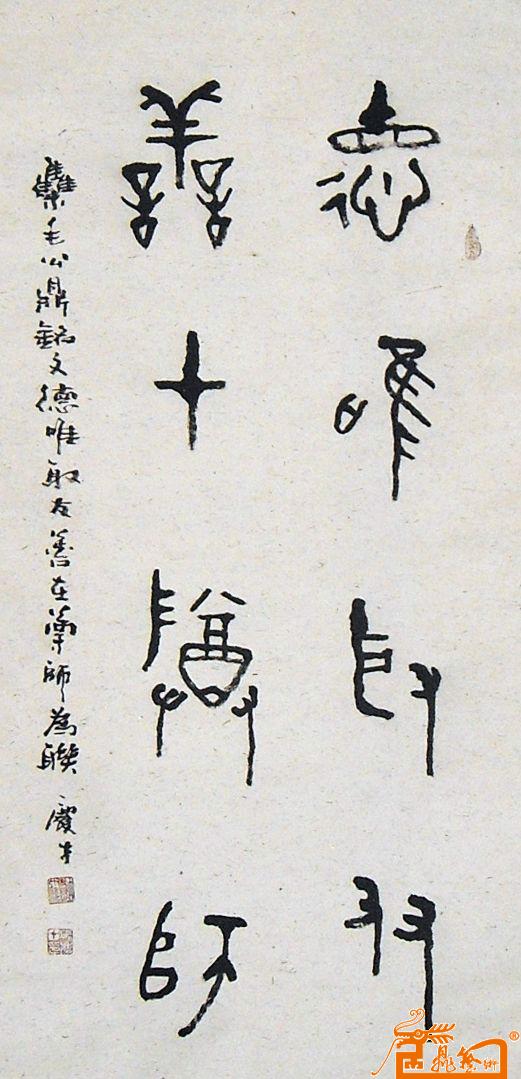 德唯取友
善在尊師
雧毛公鼎銘文德唯取友善在尊師為聯 慶才